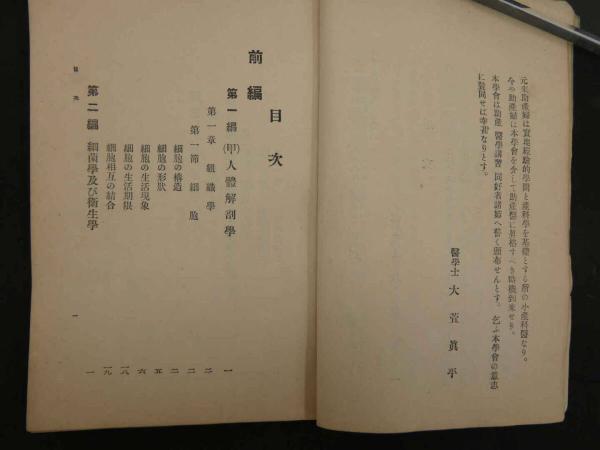 元來助產婦は實地經驗的學問と產科學を基礎とする所の小產科醫なり。
今や助產婦は本學會を介して助產醫に昇格すべき時機到來せり。
本學會は助產醫學講習同好者諸姉へ普く頒布せんとす。乞ふ本學會の意志
に賛同せば幸甚なりとす。
醫學士 大萱眞平
目次
前編
第一編 (甲)人體解剖學 一
第一章 組織學 二
第一節 細胞 二
細胞の構造 二
細胞の形狀 五
細胞の生活現象 六
細胞の生活期限 一八
細胞相互の結合 一九
第二編 細菌學及び衛生學 一
目次
一